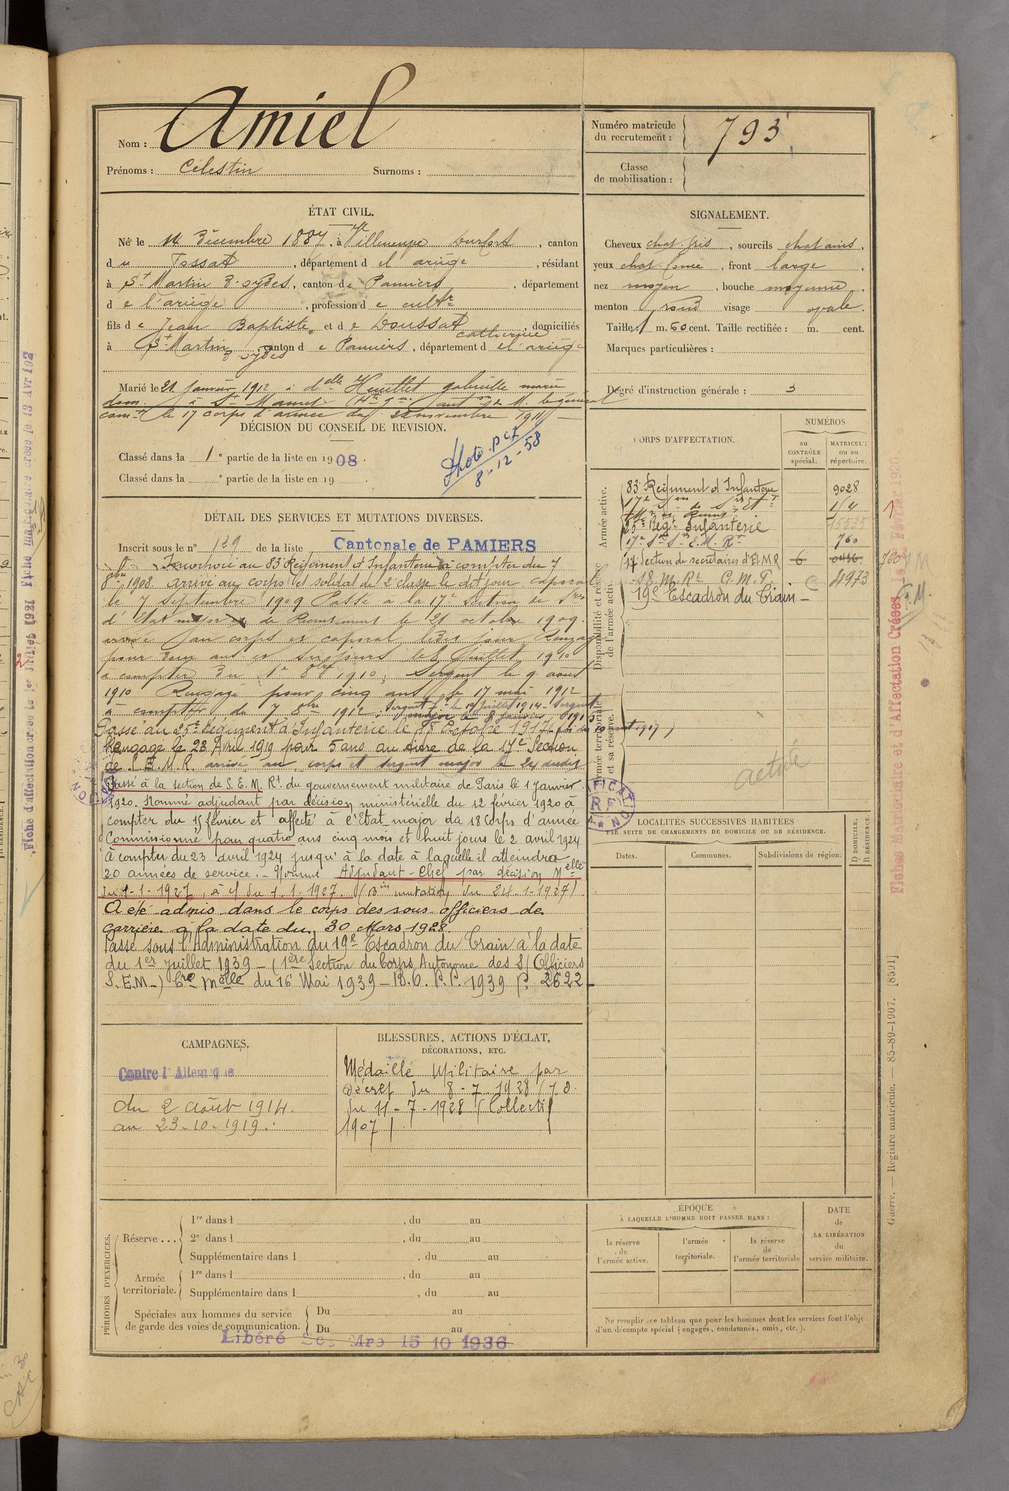 Nom : Amiel
Prénoms : Célestin Surnoms :
Numéro matricule du recrutement : 793
Classe de mobilisation :
ÉTAT CIVIL.
Né le 14 Décembre 1887, à Villeneuve Durfort, canton
du Fossat, département d el ariège, résidant
à St Martin d'oydes, canton de Pamiers, département
d e l'ariège, profession d e cultr
fils d e Jean Baptiste et d e Doussat Catherine, domiciliés
à St Martin d'oydes canton d e Pamiers, département d el'ariège
Marié le 21 Janvier 1912 à delle Huillet gabrielle marie
dom. à St Mamet
le 17 corps d'armée du 22 novembre 1911
SIGNALEMENT.
Cheveux chat. gris, sourcils chatains,
yeux chat. fonce, front large,
nez moyen, bouche moyenne,
menton rond visage ovale.
Taille : 1 m. 60 cent. Taille rectifiée : m. cent.
Marques particulières :
Degré d'instruction générale : 3
DÉCISION DU CONSEIL DE REVISION.
Classé dans la 1e partie de la liste en 1908.
Classé dans la e partie de la liste en 19
Photo-
8-12-58
DÉTAIL DES SERVICES ET MUTATIONS DIVERSES.
Inscrit sous le n° 129 de la liste Cantonale de PAMIERS
au 83 Régiment d'Infanterie à compter du 7
8bre 1908. arrivé au corps et soldat de 2e classe le dit jour caporal
le 7 Septembre 1909 Passé à la 17e Section de Sres
d'Etat major de Recrutement le 21 octobre 1909.
arrivé au corps et caporal le dit jour. Rengagé
pour deux ans et
à compter du 1er 8bre 1910. Sergent le 9 août
1910 Rengagé pour cinq ans le 17 mai 1912
à compter du 7 8bre 1912.
Passé au 25e Régiment d'Infanterie le
Rengagé le 23 Avril 1919 pour 5 ans au titre de la 17e Section
de S.E.M.R. arrivé au corps et sergent major le 24 dudit
Passé à la section de S.E.M.Rt. du gouvernement militaire de Paris le 1 janvier
1920. Nommé adjudant par décision ministérielle du 12 février 1920 à
compter du 15 février et affecté à l'Etat major du 18 Corps d'armée
Commissionné pour quatre ans cinq mois et huit jours le 2 avril 1924
à compter du 23 avril 1924 jusqu'à la date à laquelle il atteindra
20 années de service. - Nommé Adjudant-Chef par décision Melle
du 1-1-1927, à c/ du 1.1.1927. (13e mutations du 24-1-1927)
A été admis dans le corps des sous officiers de
carrière à la date du 30 Mars 1928.
Passé sous l'Administration du 19e Escadron du Train à la date
du 1er Juillet 1939 - (1ère Section du Corps Autonome des S/Officiers
S.E.M-) Cre Melle du 16 Mai 1939 - B.O. P.P. 1939 P. 2622 -
CORPS D'AFFECTATION.
NUMÉROS
au CONTRÔLE spécial.
MATRICULE ou au répertoire.
Armée active.
83e Régiment d'Infanterie 9028
25me Régt Infanterie
17e Son S.E.M.Rt 760
17 Section de secrétaires d'E.M.R. 6
S.E.M.Rt G.M.P. 4973
19e Escadron du Train -
Disponibilité et réserve de l'armée active.
Armée territoriale et sa réserve.
activé
LOCALITÉS SUCCESSIVES HABITÉES
PAR SUITE DE CHANGEMENTS DE DOMICILE OU DE RÉSIDENCE.
Dates.
Communes.
Subdivisions de région.
D DOMICILE.
R RÉSIDENCE.
CAMPAGNES.
Contre l'Allemagne
du 2 août 1914.
au 23-10-1919.
BLESSURES, ACTIONS D'ÉCLAT,
DÉCORATIONS, ETC.
Médaille Militaire par
Décret du 8-7-1928 (J.O.
du 11-7-1928 (Collectif
1907)
PÉRIODES D'EXERCICES.
Réserve... 1re dans l , du au
2e dans l , du au
Supplémentaire dans l , du au
Armée territoriale. 1re dans l , du au
Supplémentaire dans l , du au
Spéciales aux hommes du service de garde des voies de communication. Du au
Du au
Libéré Ser Mre 15 10 1936
ÉPOQUE
À LAQUELLE L'HOMME DOIT PASSER DANS :
la réserve de l'armée active.
l'armée territoriale.
la réserve de l'armée territoriale
DATE de LA LIBÉRATION du service militaire.
Ne remplir ce tableau que pour les hommes dont les services font l'objet
d'un décompte spécial (engagés, condamnés, omis, etc.).
Guerre. — Registre matricule. — 85-89-1907. [8591]